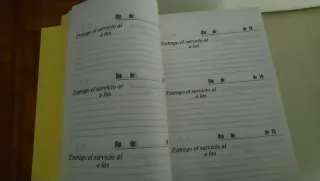 Día de
Entrego el servicio al
a las
Día de
Entrego el servicio al
a las
Día de
Entrego el servicio al
a las
de 19
Entrego el servicio al
a las
de 19
Entrego el servicio al
a las
de 19
Entrego el servicio al
a las